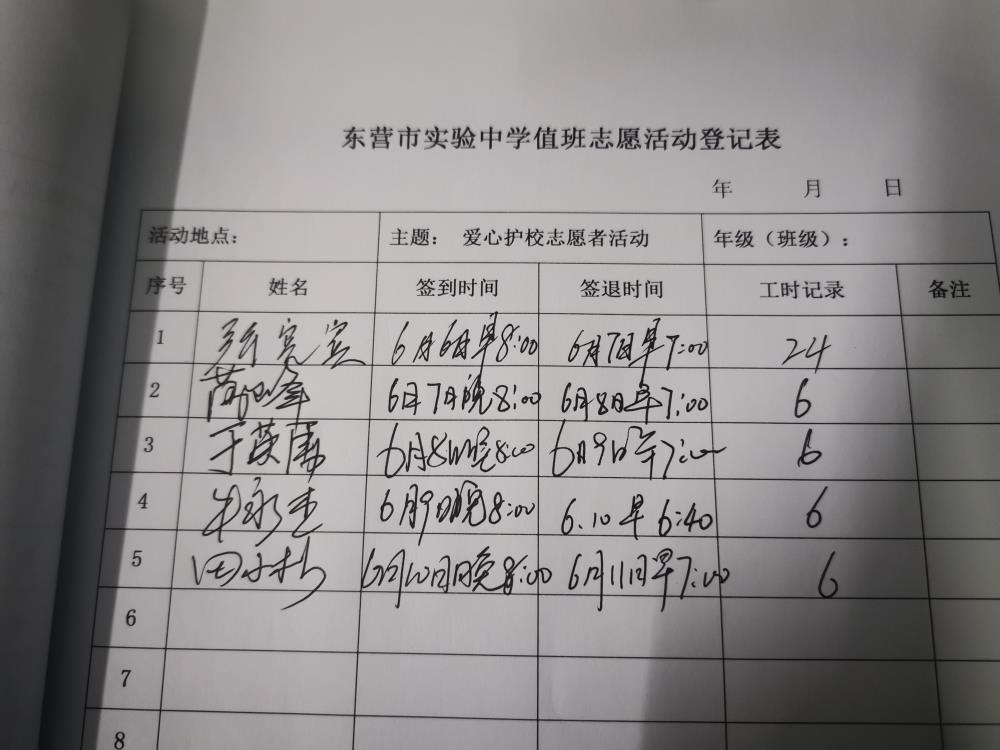 东营市实验中学值班志愿活动登记表
年 月 日
活动地点： 主题： 爱心护校志愿者活动 年级（班级）：
序号 姓名 签到时间 签退时间 工时记录 备注
1 6月6日早8:00 6月7日早7:00 24
2 6月7日晚8:00 6月8日早7:00 6
3 6月8日晚8:00 6月9日早7:00 6
4 牛永志 6月9日晚8:00 6.10早6:40 6
5 6月10日晚8:00 6月11日早7:00 6
6
7
8